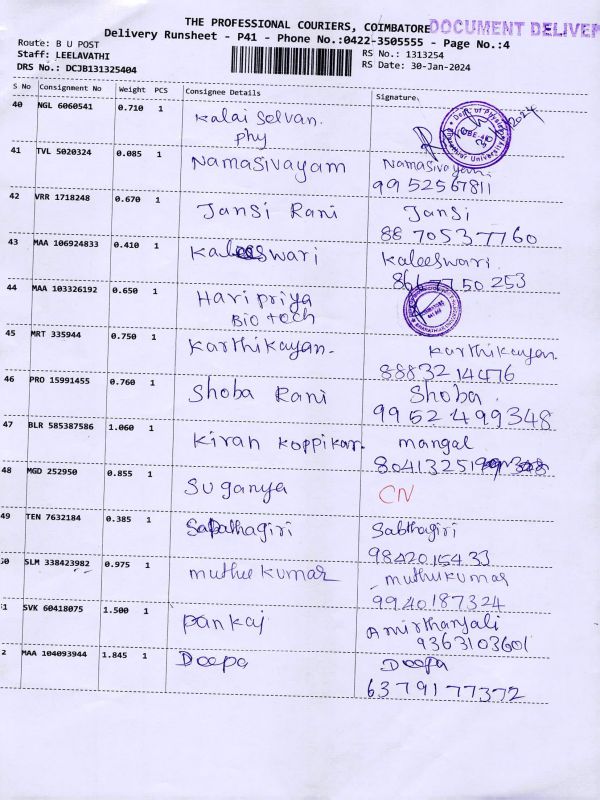 THE PROFESSIONAL COURIERS, COIMBATORE
DOCUMENT DELIVER
Delivery Runsheet - P41 - Phone No.:0422-3505555 - Page No.:4
Route: B U POST
Staff: LEELAVATHI
DRS No.: DCJB131325404
RS No.: 1313254
RS Date: 30-Jan-2024
S No Consignment No Weight PCS Consignee Details Signature
40 NGL 6060541 0.710 1 Kalai Selvan.
phy
2024
41 TVL 5020324 0.085 1 Namasivayam Namasivayam
9952567811
42 VRR 1718248 0.670 1 Jansi Rani Jansi
8870537760
43 MAA 106924833 0.410 1 Kaleeswari Kaleeswari
8667750253
44 MAA 103326192 0.650 1 Haripriya
Bio tech
45 MRT 335944 0.750 1 Karthikayan. Karthikayan.
8883214476
46 PRO 15991455 0.760 1 Shoba Rani Shoba.
9952499348
47 BLR 585387586 1.060 1 Kiran Koppikar. mangal
48 MGD 252950 0.855 1 Suganya CN
49 TEN 7632184 0.385 1 Sapathagiri Sabthagiri
9842015433
50 SLM 338423982 0.975 1 muthukumar muthukumar
9940187324
51 SVK 60418075 1.500 1 Pankaj Amirthanjali
9363103601
2 MAA 104093944 1.845 1 Deepa Deepa
6379177372